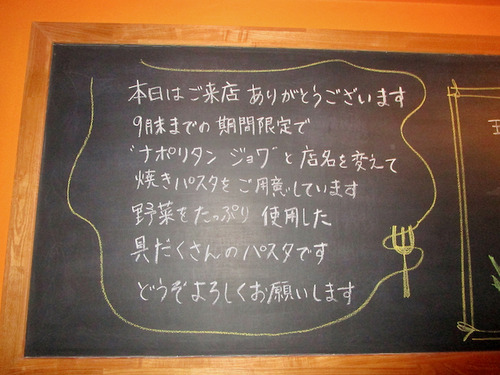 本日はご来店ありがとうございます
9月末までの期間限定で
"ナポリタン ジョワ"と店名を変えて
焼きパスタをご用意しています
野菜をたっぷり使用した
具だくさんのパスタです
どうぞよろしくお願いします